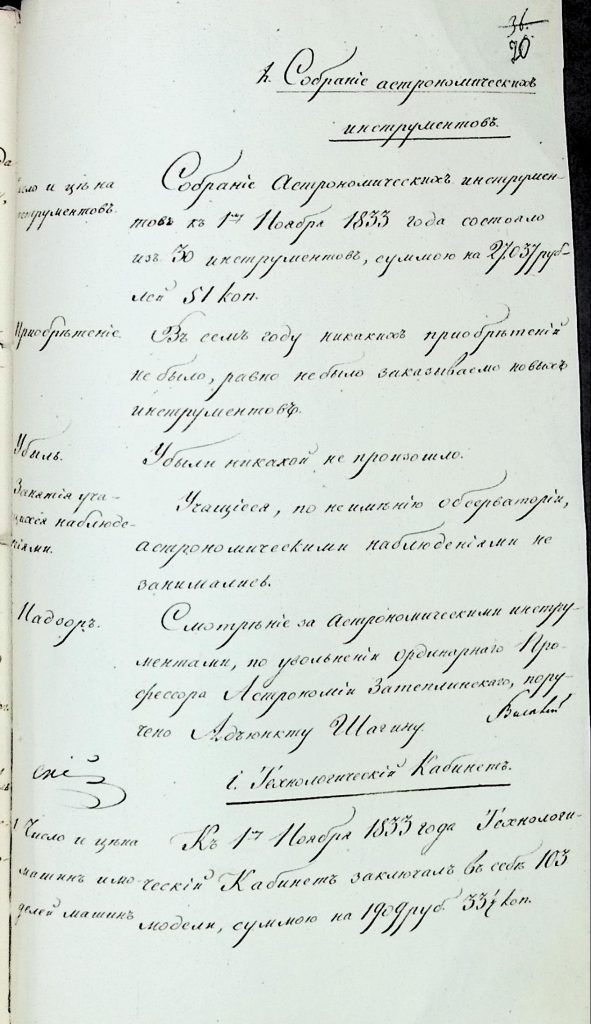 36.
20
h. Собраніе астрономическихъ
инструментовъ.
Число и цѣна
инструментовъ.
Собраніе Астрономическихъ инструмен-
товъ къ 1му Ноября 1833 года состояло
изъ 30 инструментовъ, суммою на 27.037 руб-
лей 51 коп.
Приобрѣтеніе.
Въ семъ году никакихъ приобрѣтеній
не было, равно небыло заказываемо новыхъ
инструментовъ.
Убыль.
Убыли никакой не произошло.
Занятія уча-
щихся наблюде-
ніями.
Учащіеся, по неимѣнію обсерваторіи,
астрономическими наблюденіями не
занимались.
Надзоръ.
Смотрѣніе за Астрономическими инстру-
ментами, по увольненіи ординарнаго Про-
фессора Астрономіи Затеплинскаго, пору-
чено Адъюнкту Шагину.
скій
i. Технологическій Кабинетъ.
Число и цѣна
машинъ и мо-
делей машинъ
Къ 1му Ноября 1833 года Технологи-
ческій Кабинетъ заключалъ въ себѣ 103
модели, суммою на 1909 руб. 33½ коп.